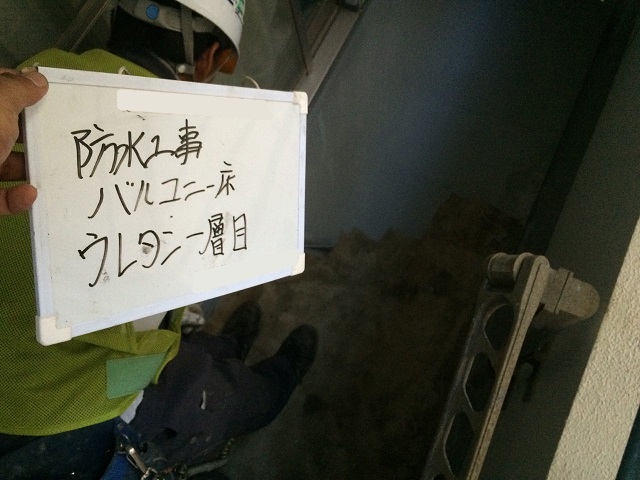 防水工事
バルコニー床
ウレタン一層目